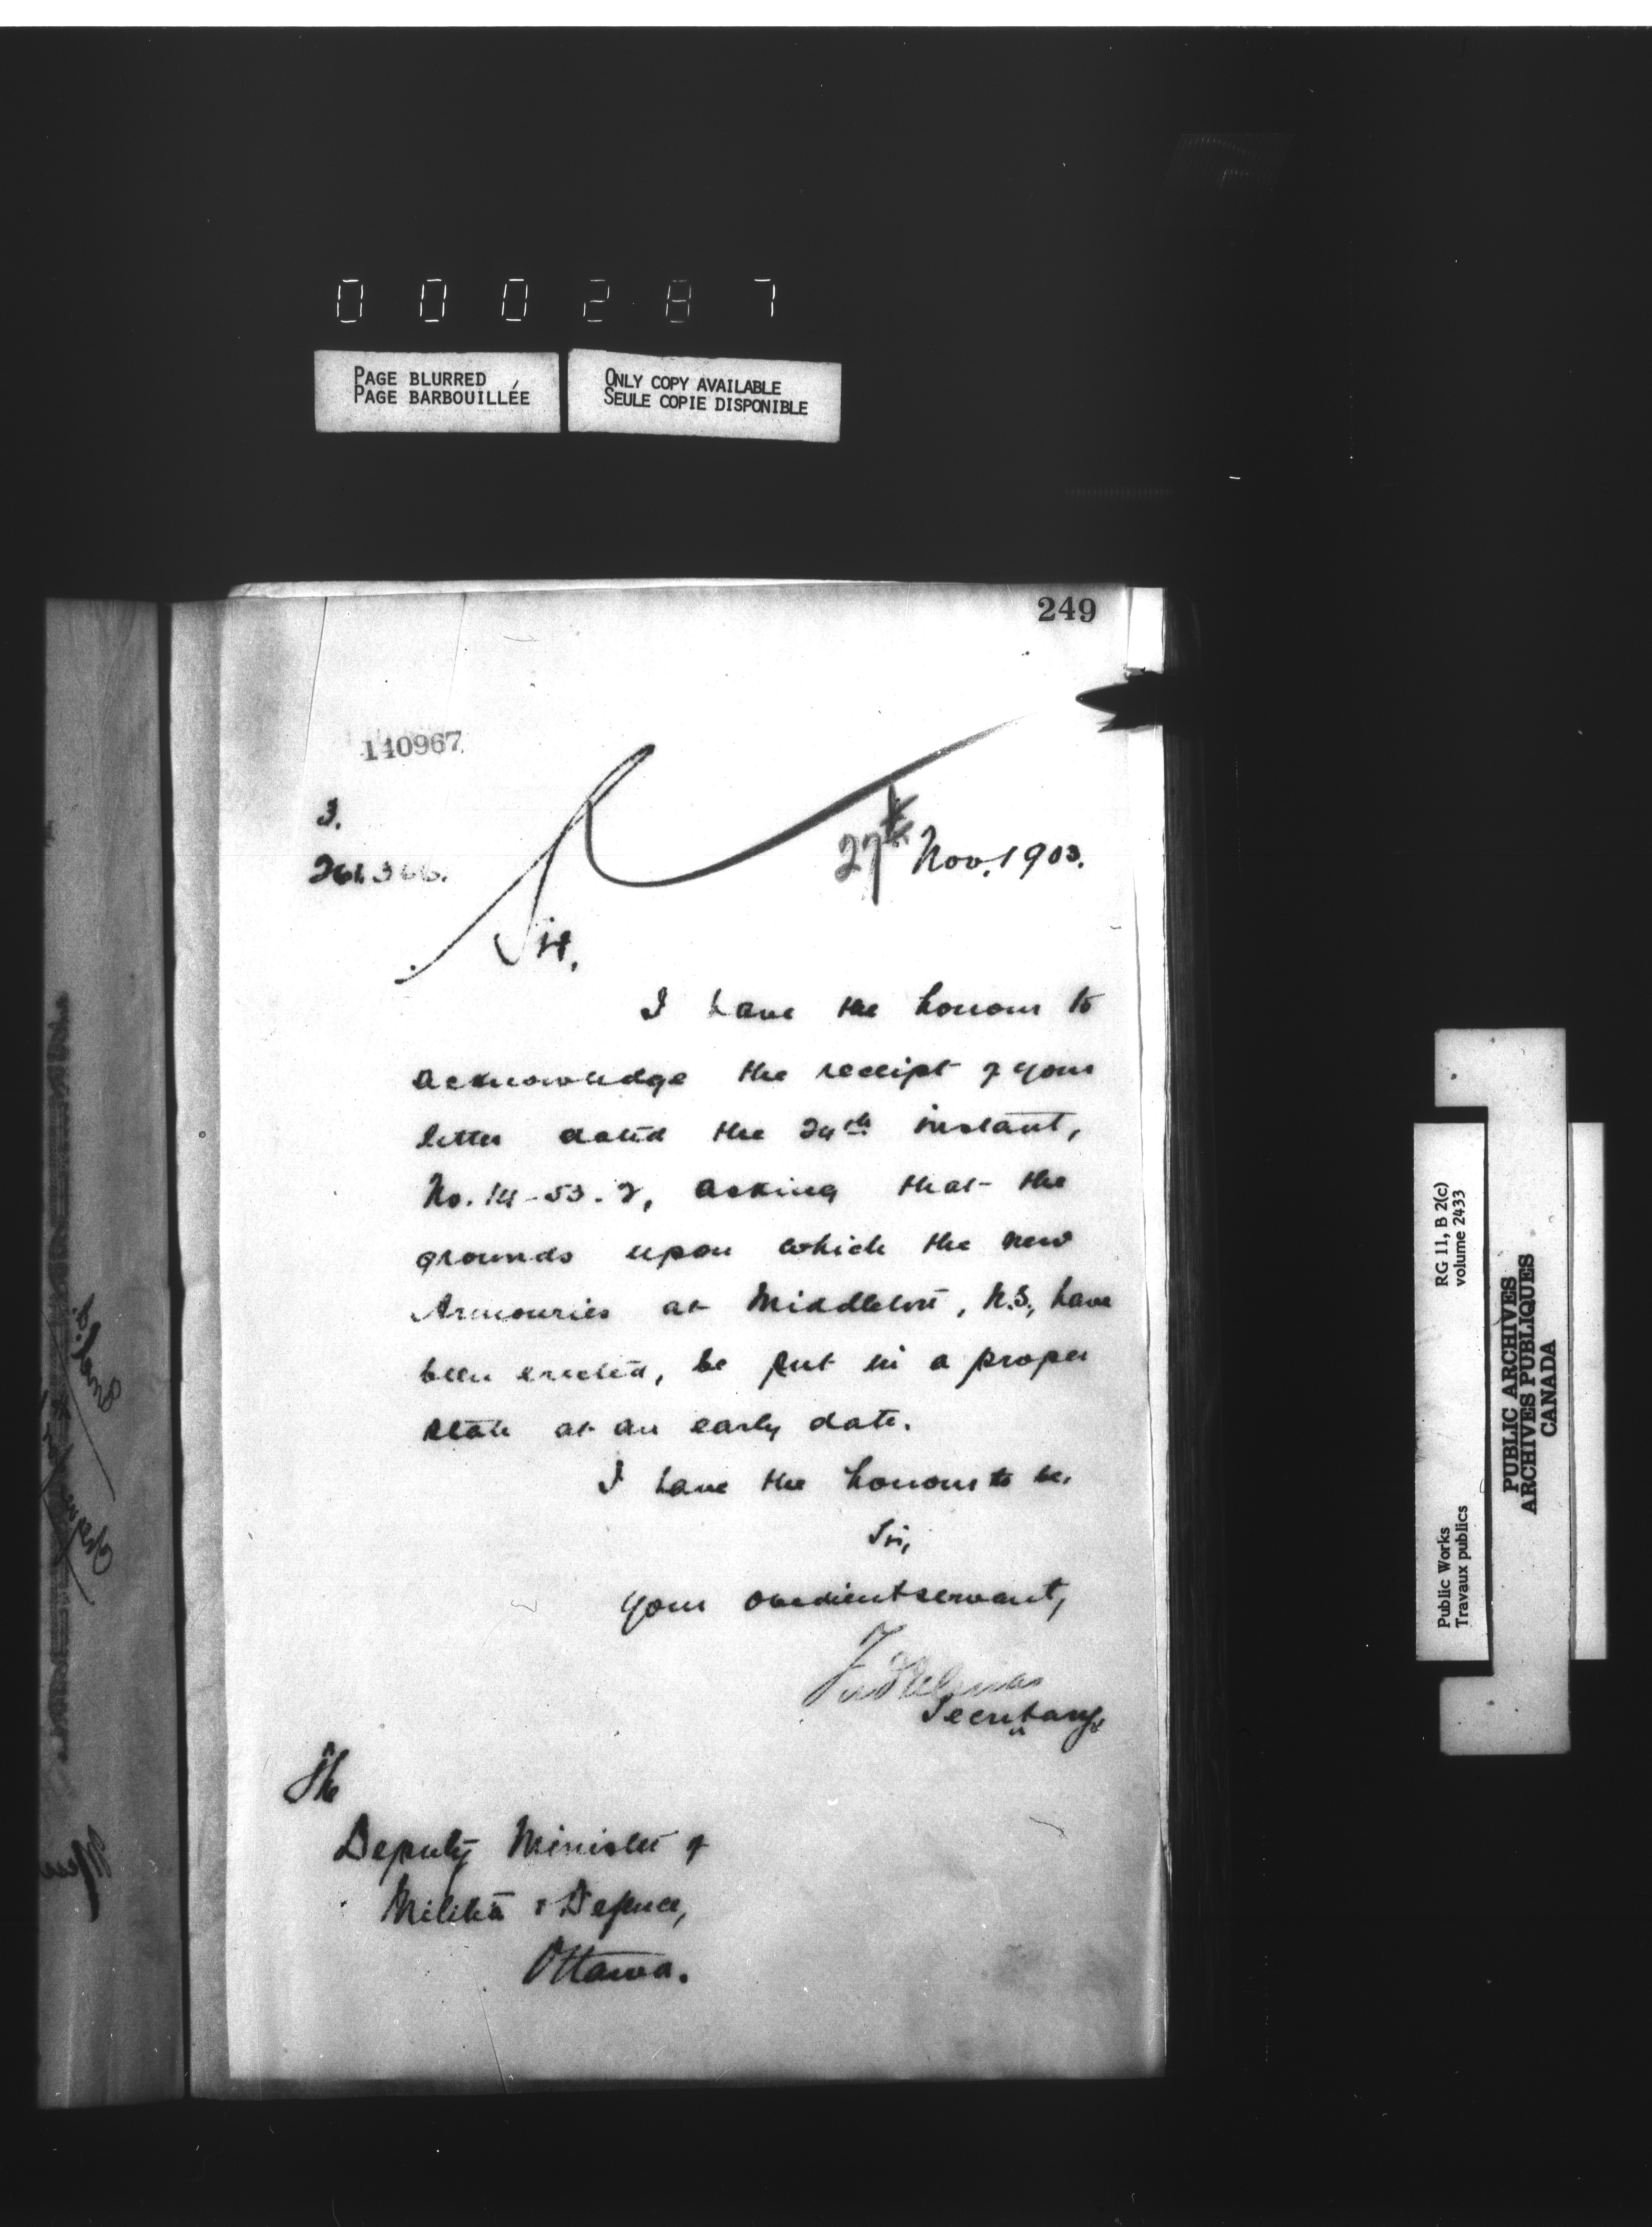 000287
PAGE BLURRED
PAGE BARBOUILLÉE
ONLY COPY AVAILABLE
SEULE COPIE DISPONIBLE
249
140967
3.
27th Nov. 1903.
Sir,
I have the honour to
acknowledge the receipt of your
letter dated the 24th instant,
No. 14-53-2, asking that the
grounds upon which the new
Armouries at Middleton, N.S., have
been erected, be put in a proper
state at an early date.
I have the honour to be,
Sir,
Your obedient servant,
Secretary.
The
Deputy Minister of
Militia & Defence,
Ottawa.
RG 11, B 2(c)
volume 2433
Public Works
Travaux publics
PUBLIC ARCHIVES
ARCHIVES PUBLIQUES
CANADA